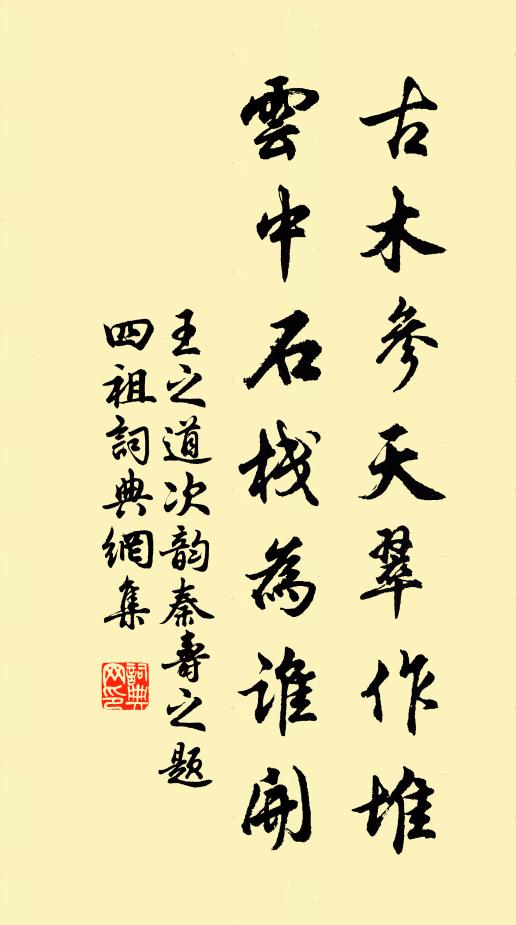 古木參天翠作堆
雲中石栈為誰開
王之道次韵秦壽之題
四祖詞典網集
詞典網印